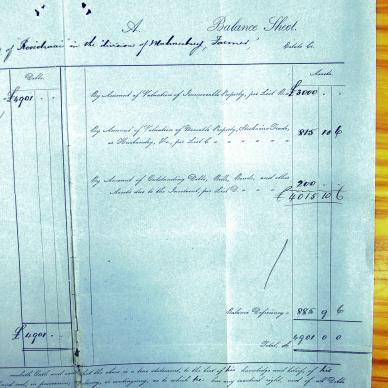 A. Balance Sheet.
of Residence in the division of Malmesbury, Farmer
Debts
£4901 . .
Assets
By Amount of Valuation of Immoveable Property, per List B. £3000 . .
By Amount of Valuation of Moveable Property, Stock in Trade, or Husbandry, &c., per List C 815 10 6
By Amount of Outstanding Debts, Bills, Bonds, and other Assets due to the Insolvent, per List D. 200
£4015 10 6
Balance Deficiency 885 9 6
£4901 . .
Total, £ 4901 0 0
the above is a true statement, to the best of his knowledge and belief, of his